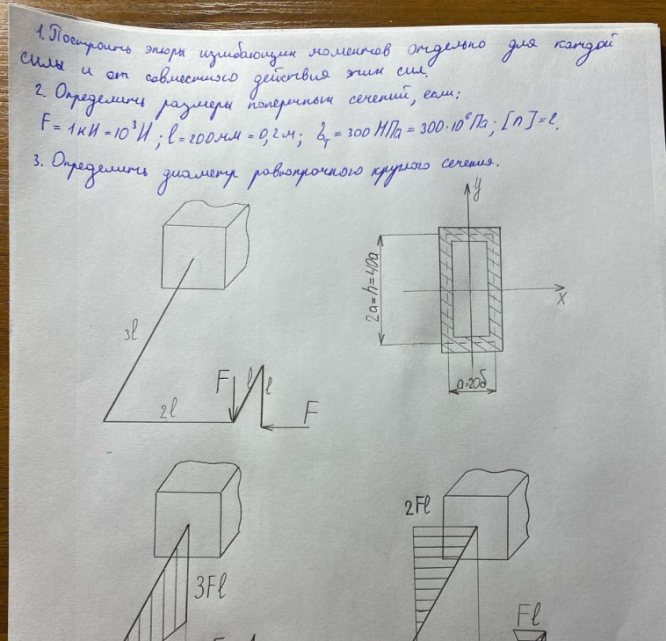 1. Построить эпюры изгибающих моментов отдельно для каждой
силы и от совместного действия этих сил.
2. Определить размеры поперечных сечений, если:
F = 1кН = 10³Н; l = 200мм = 0,2м; σт = 300 МПа = 300·10⁶Па; [n] = 2.
3. Определить диаметр равнопрочного круглого сечения.
y
2a=h=40δ
x
a=20δ
3l
F
l
l
2l
F
2Fl
3Fl
Fl